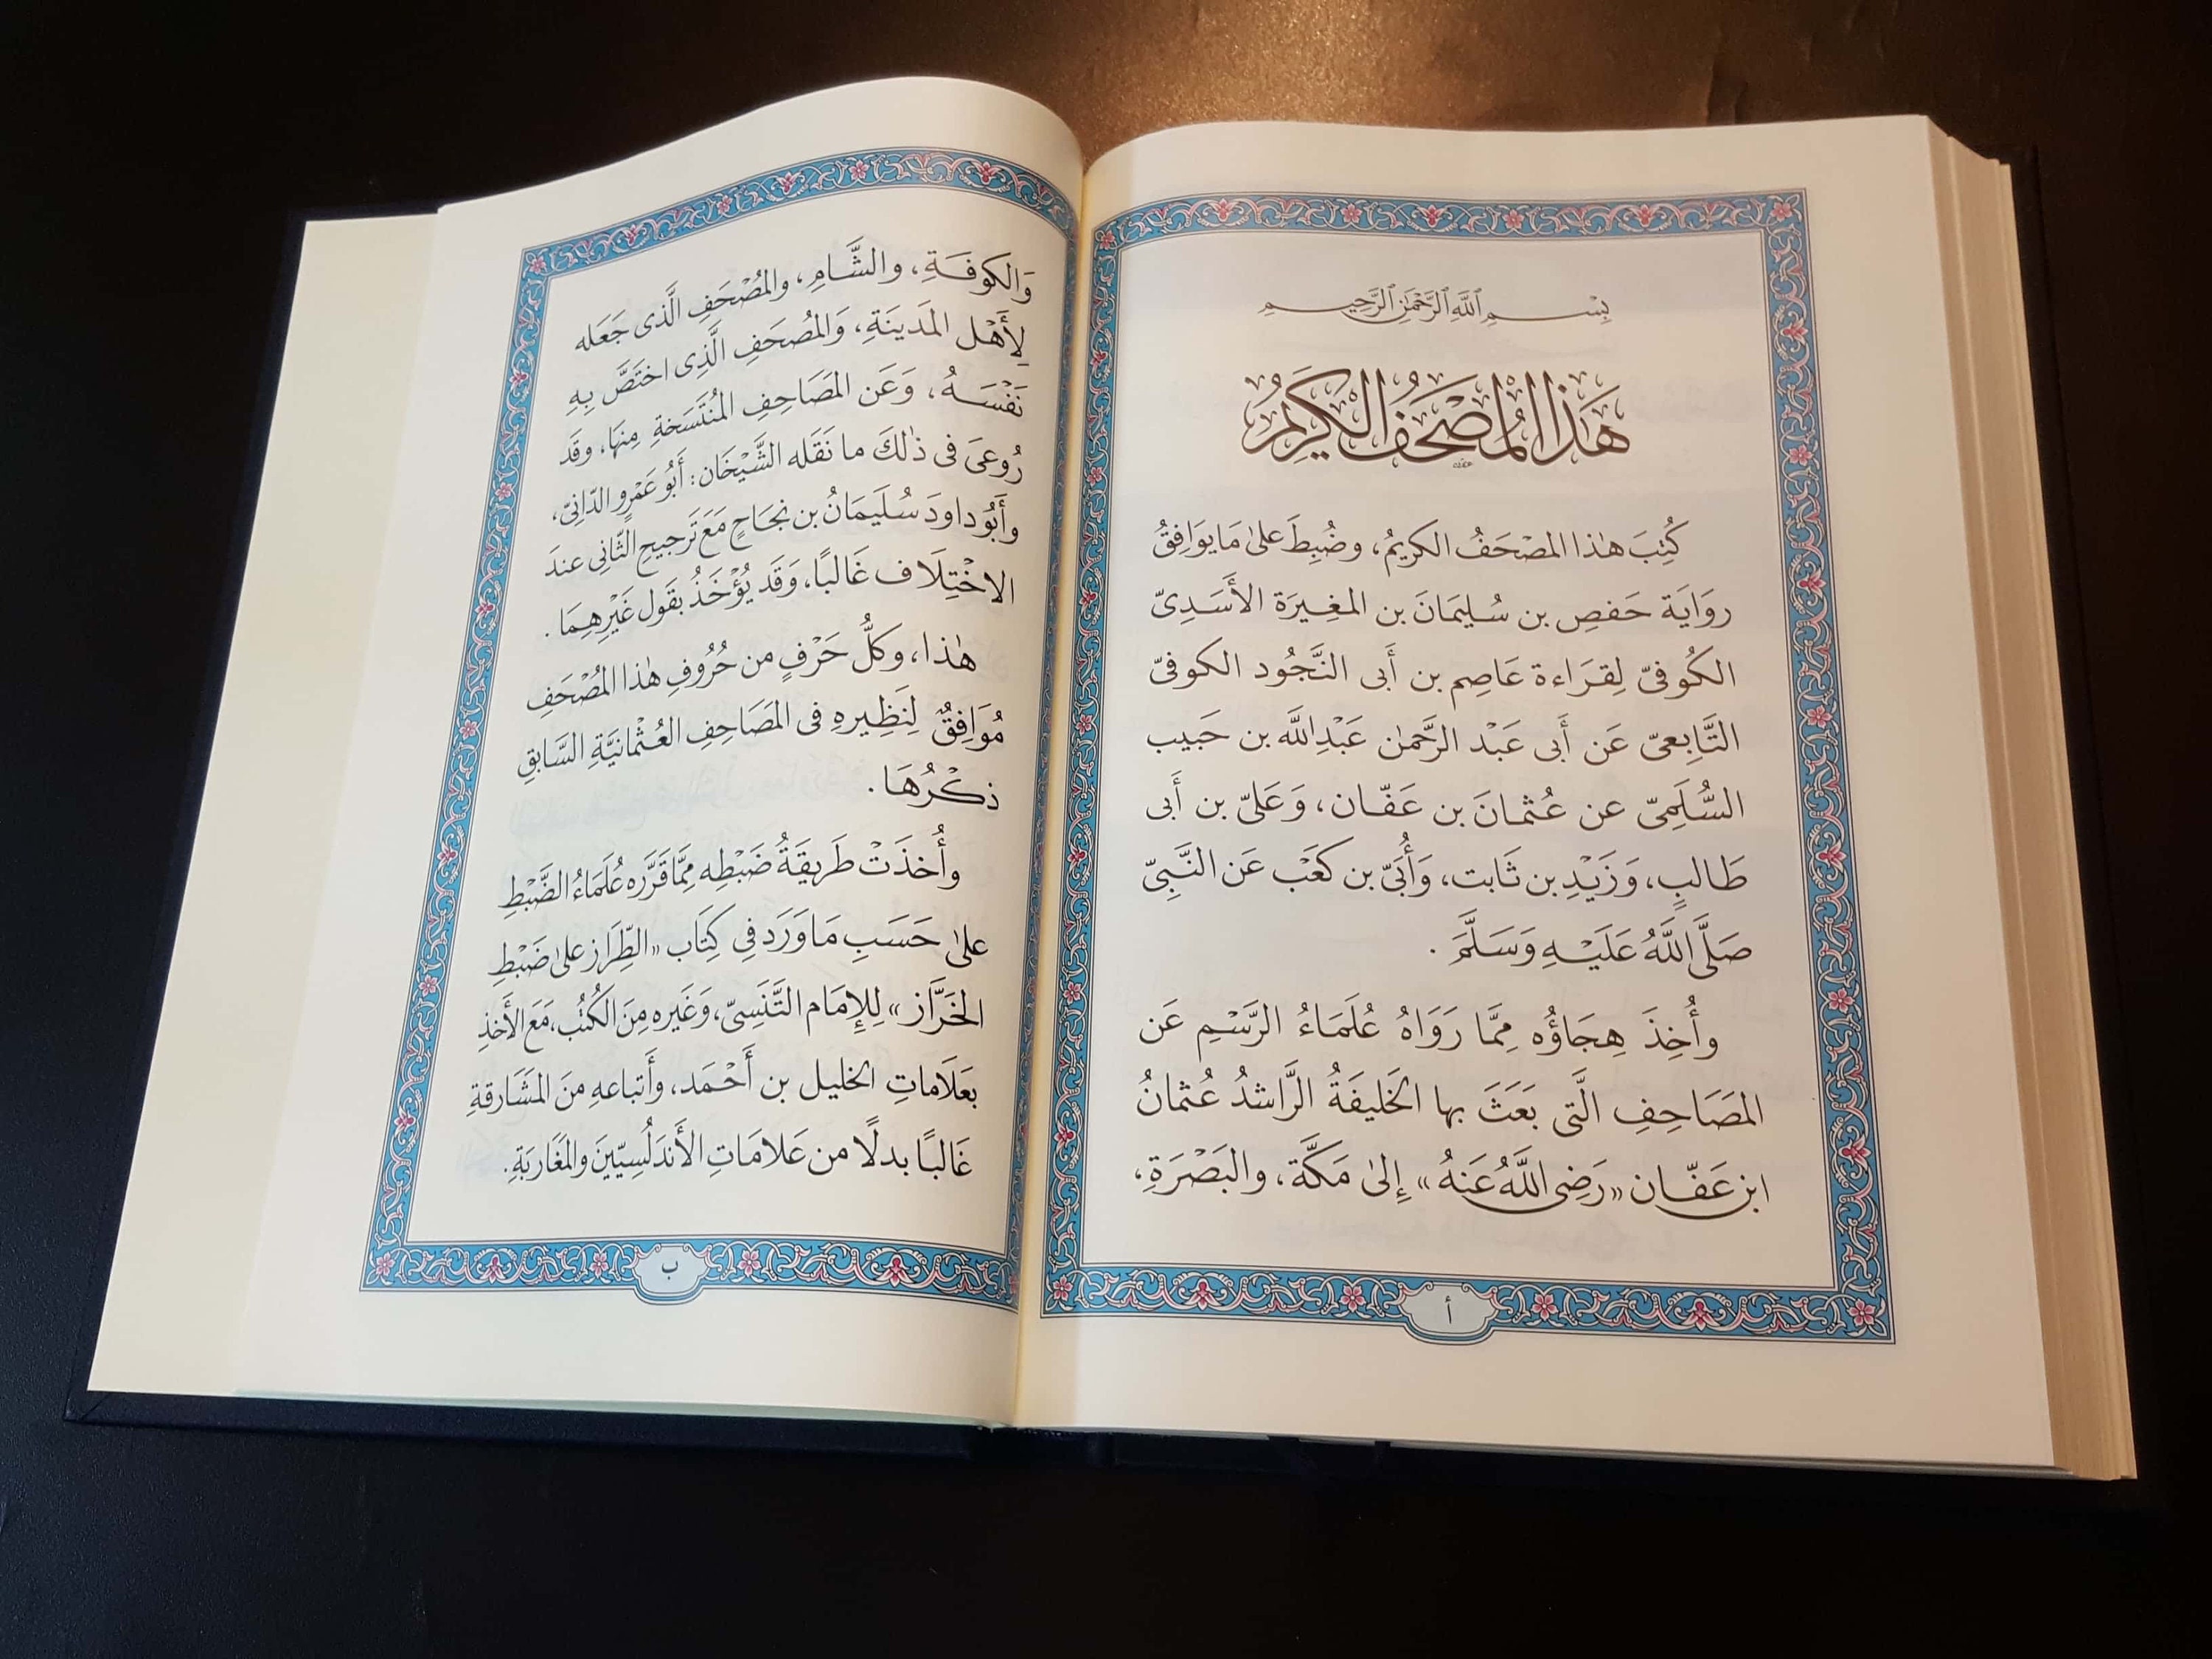 بِسْمِ ٱللَّهِ ٱلرَّحْمَٰنِ ٱلرَّحِيمِ
هَٰذَا الْمُصْحَفُ الْكَرِيمُ
كُتِبَ هٰذا المصْحَفُ الكريمُ، وضُبِطَ علىٰ مَا يوَافِقُ
روَايَة حَفصِ بن سُليمَانَ بن المغِيرَة الأَسَدِىّ
الكُوفىّ لِقرَاءة عَاصِم بن أَبى النَّجُود الكوفىّ
التَّابِعىّ عَن أَبى عَبْد الرَّحمٰن عَبْدِاللَّه بن حَبيب
السُّلَمِىّ عن عُثمَانَ بن عَفّان، وَعَلىّ بن أَبى
طَالبٍ، وَزَيْدِ بن ثَابت، وَأُبَىّ بن كَعْب عَن النَّبِىّ
صَلَّى اللَّهُ عَلَيْهِ وَسَلَّمَ .
وأُخِذَ هِجَاؤُه مِمَّا رَوَاهُ عُلَمَاءُ الرَّسْمِ عَن
المَصَاحِفِ الَّتى بَعَثَ بها الخَليفَةُ الرَّاشدُ عُثمانُ
ابن عَفّان «رَضِى اللَّهُ عَنهُ» إلىٰ مَكَّة، والبَصْرَةِ،
أ
وَالكوفَةِ، والشَّامِ، والمُصْحَفِ الَّذى جَعَله
لِأَهْل المَدينَةِ، وَالمُصحَفِ الَّذِى اختَصَّ بِهِ
نَفْسَهُ، وَعَن المَصَاحِفِ المُنْتَسَخةِ مِنهَا، وقَد
رُوعىَ فى ذٰلكَ ما نَقَله الشَّيْخَان: أَبُو عَمْرٍو الدّانِىّ،
وأَبُو داودَ سُلَيمَانُ بن نجَاحٍ مَعَ تَرجيحِ الثّانِى عندَ
الاخْتِلَاف غَالبًا، وَقَد يُؤْخَذُ بقَول غَيْرِهِمَا .
هٰذا، وكلُّ حَرْفٍ من حُرُوفِ هٰذا المُصْحَفِ
مُوَافِقٌ لِنَظِيرهِ فى المَصَاحِفِ العُثْمانيَّةِ السَّابقِ
ذكْرُهَا .
وأُخذَتْ طَريقَةُ ضَبْطِه مِمَّا قَرَّره عُلَمَاءُ الضَّبْطِ
علىٰ حَسَبِ مَا وَرَد فِى كِتَاب «الطِّرَاز علىٰ ضَبْطِ
الخَرَّاز» لِلإمَام التَّنَسِىّ، وَغَيره مِنَ الكُتُب، مَعَ الأَخذِ
بعَلَاماتِ الخليل بن أَحْمَد، وأَتباعهِ منَ المَشَارقةِ
غَالبًا بدلًا من عَلامَاتِ الأَندَلُسِيّينَ والمَغَاربَةِ.
ب